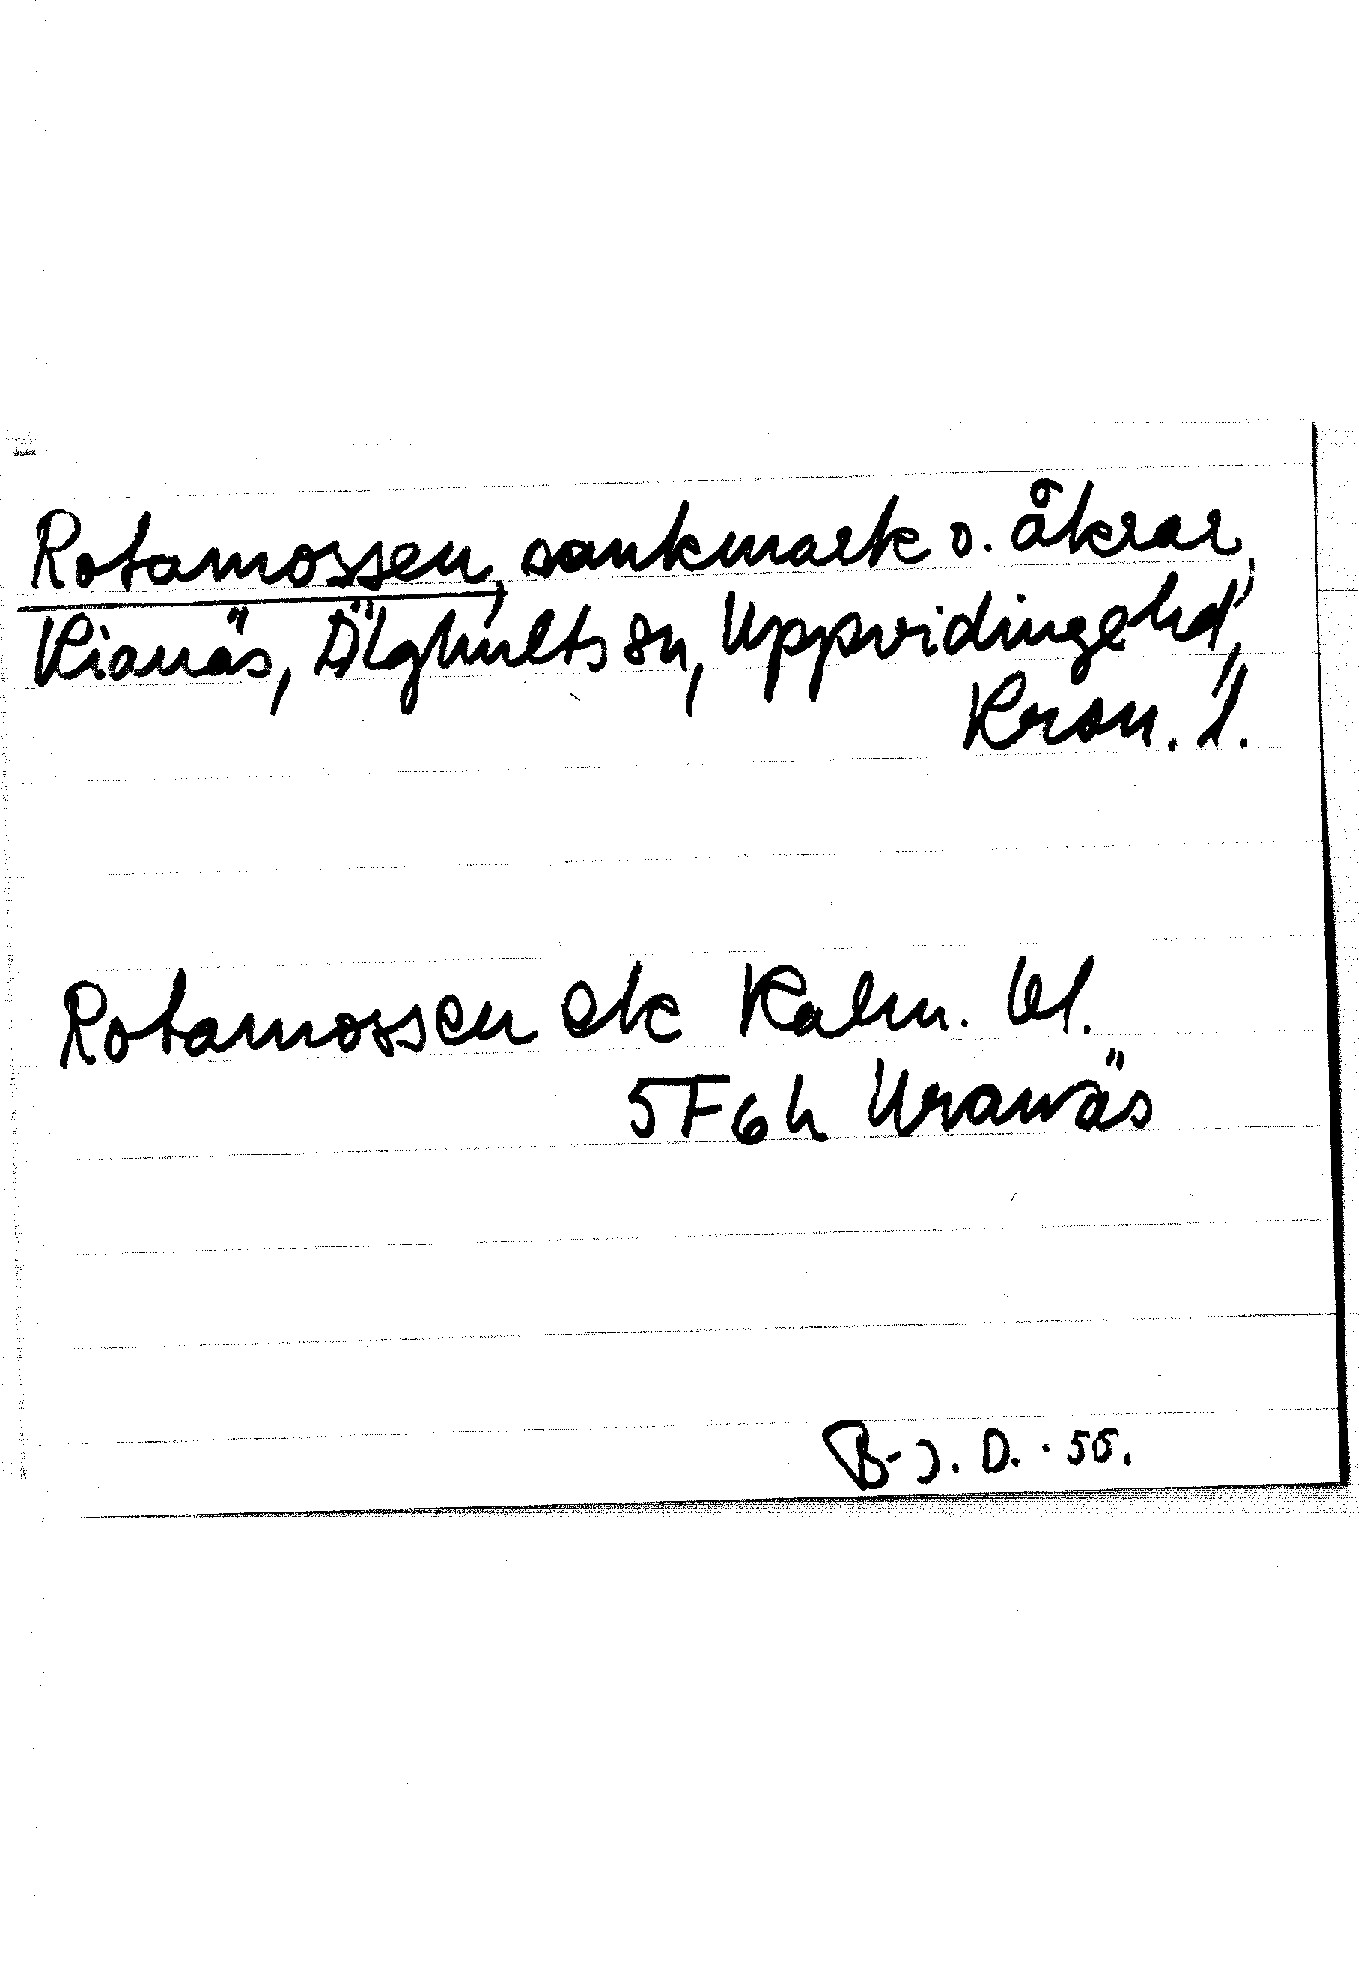 Rotamossen, sankmark o. åkrar,
Kianäs, Älghults sn, Uppvidingehd,
Kron. l.
Rotamossen ek Kalm. bl.
5F6h Kranäs
B-J. D. - 55.